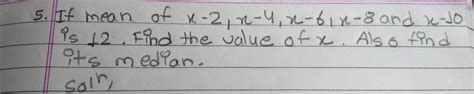 5. If mean of x-2, x-4, x-6, x-8 and x-10
is 12. Find the value of x. Also find
its median.
soln,